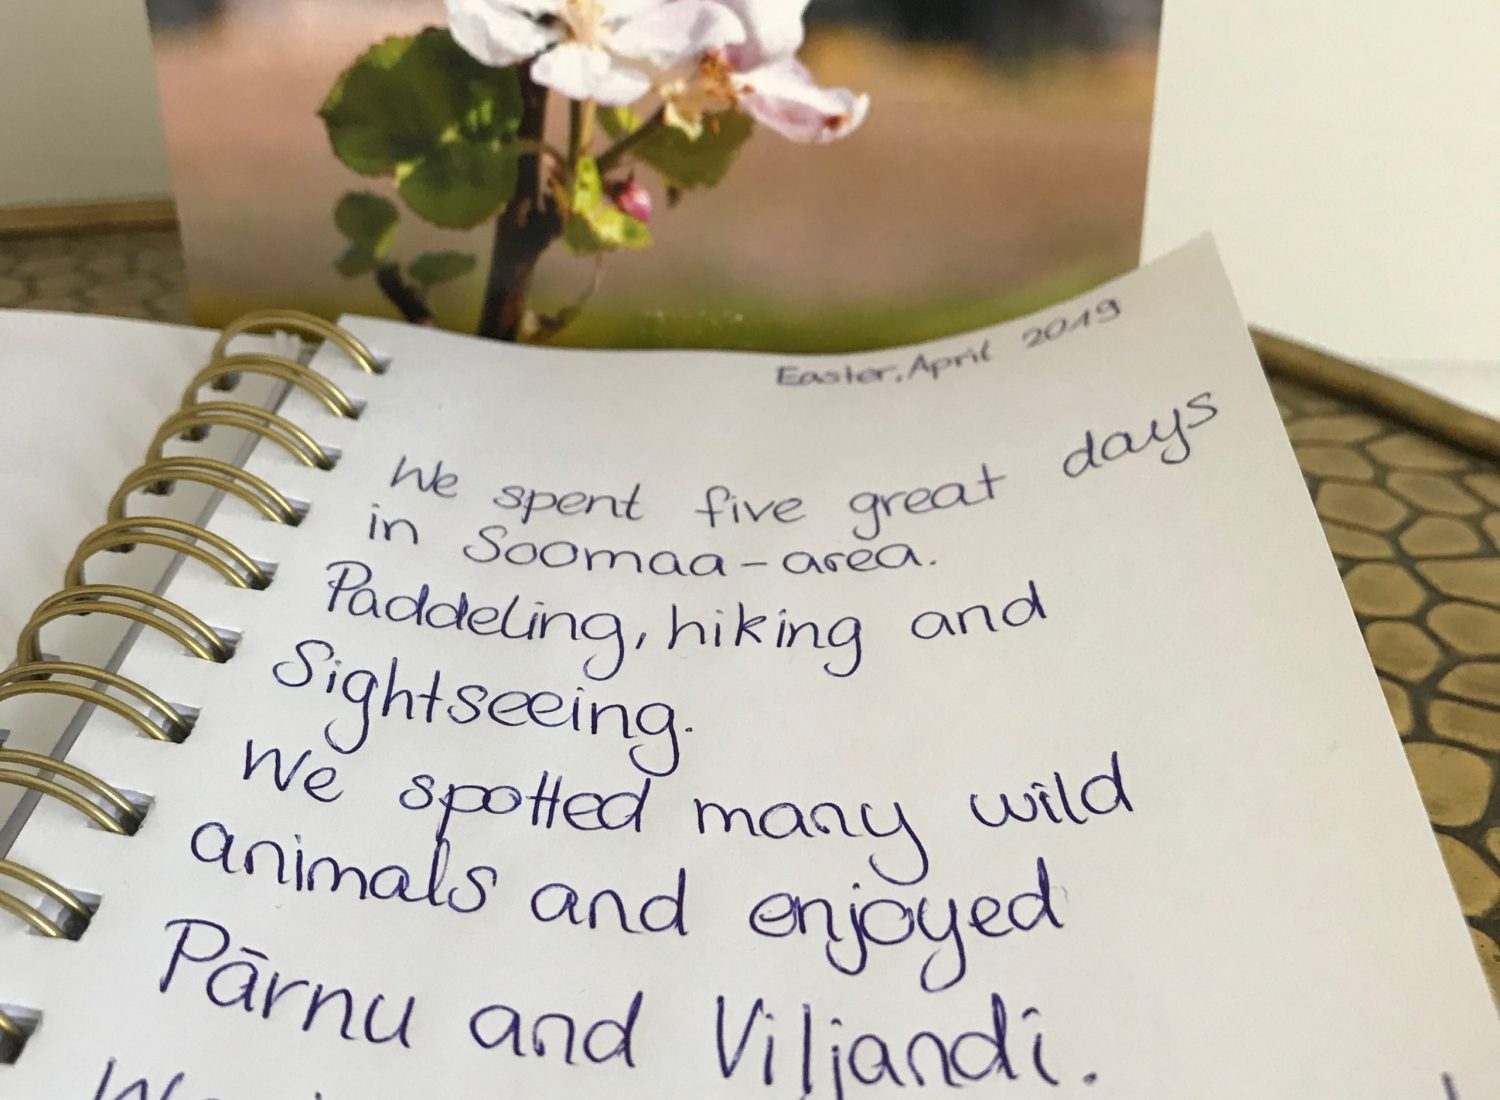 Easter, April 2019
We spent five great days
in Soomaa-area.
Paddeling, hiking and
Sightseeing.
We spotted many wild
animals and enjoyed
Pārnu and Viljandi.